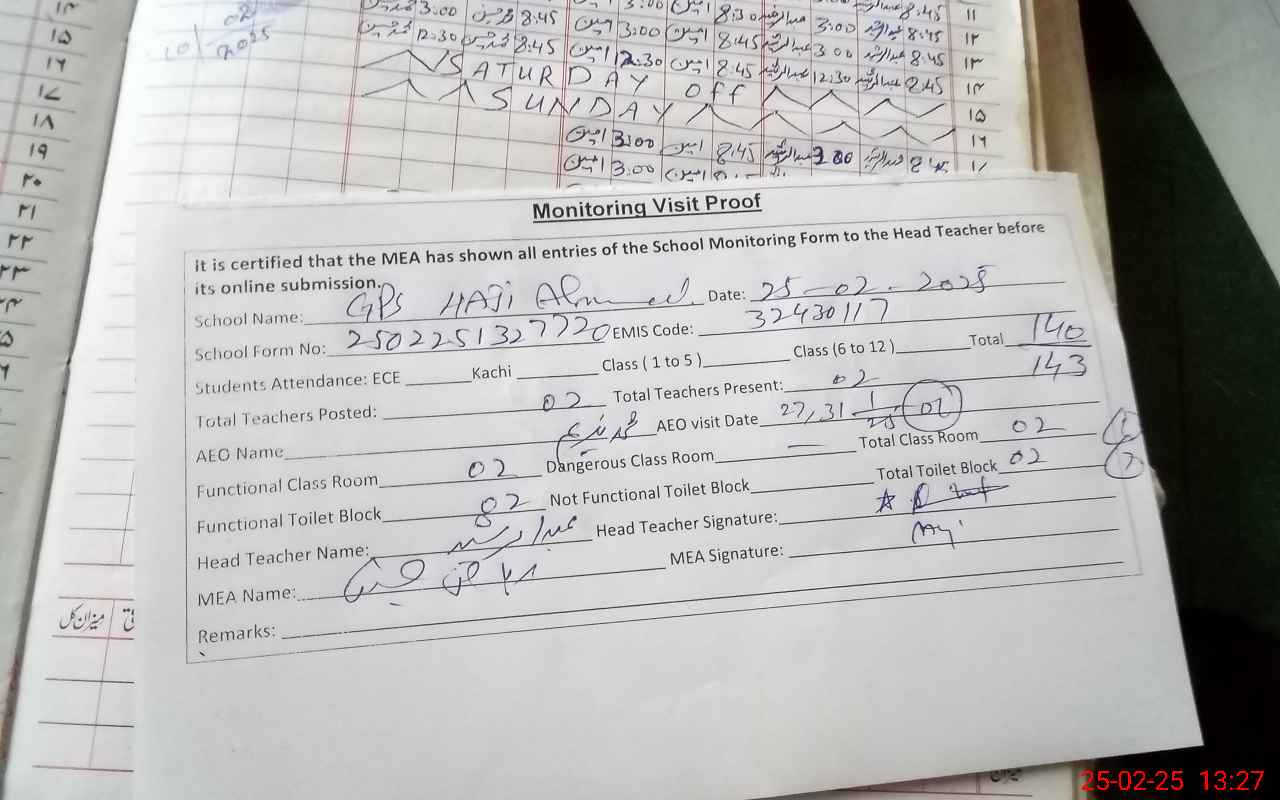 3:00 8:45 3:00 8:30 3:00 8:45 ۱۱
12:30 8:45 3:00 8:45 3:00 8:45 ۱۲
امین 12:30 امین 8:45 12:30 8:45 ۱۳
SATURDAY off
SUNDAY ۱۵
امین 3:00 امین 8:45 3:00 8:45 ۱۶
امین 3:00 امین
۱۵
۱۶
۱۷
۱۸
۱۹
۲۰
۲۱
۲۲
۲۳
میزان کل
Monitoring Visit Proof
It is certified that the MEA has shown all entries of the School Monitoring Form to the Head Teacher before
its online submission.
School Name: GPS HAJi Ahmed Date: 25-02-2025
School Form No: 2502251327720 EMIS Code: 32430117
Students Attendance: ECE Kachi Class ( 1 to 5 ) Class (6 to 12 ) Total 140
143
Total Teachers Posted: 02 Total Teachers Present: 02
AEO Name AEO visit Date 27, 31 1/25 02
Functional Class Room 02 Dangerous Class Room — Total Class Room 02 1
Functional Toilet Block 02 Not Functional Toilet Block Total Toilet Block 02 2
Head Teacher Name: عبدالرشید Head Teacher Signature:
MEA Name: MEA Signature:
Remarks:
25-02-25 13:27